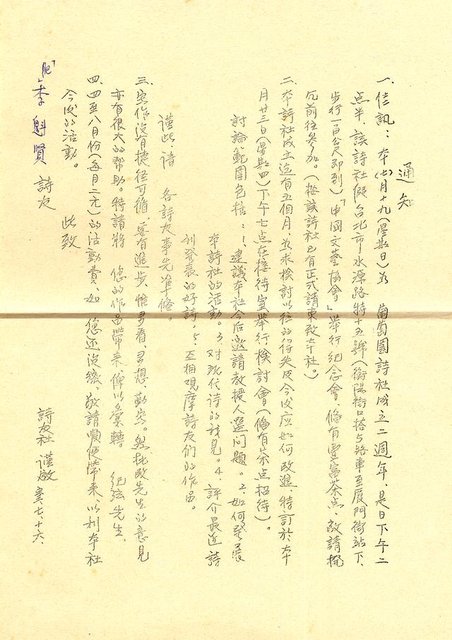 通知
一、佳訊：本(七)月十九(星期日)為 葡萄園詩社成立二週年，是日下午二
點半，該詩社假台北市水源路特十五號(衡陽街口搭5路車至厦門街站下，
步行一百公尺即到)「中國文藝協會」舉行紀念會，備有豐富茶点，敬請撥
冗前往參加。(按該詩社已有正式請柬致本社)
二、本詩社成立迄有五個月，並求檢討以往的得失及今後應如何改進，特訂於本
月廿三日(星期四)下午七点在接待室舉行檢討會(備有茶点招待)。
討論範圍包括：1.建議本社今后邀請教授人選問題。2.如何發展
本詩社的活動。3.对現代诗的詩見。4.評介最近詩
刊發表的好詩。5.互相观摩詩友们的作品。
謹此，请 各詩友事先準備。
三、寫作沒有捷径可循，要有進步，惟多看，多想，勤寫。與批改先生的意見
亦有很大的幫助。特請將 您的作品帶来俾以彙轉 纪弦先生。
四、四至八月份(每月二元)的活動費，如 您还沒繳，敬請順便帶来，以利本社
今後的活動。
此致
李魁賢 詩友
詩友社 謹啟 七、十六